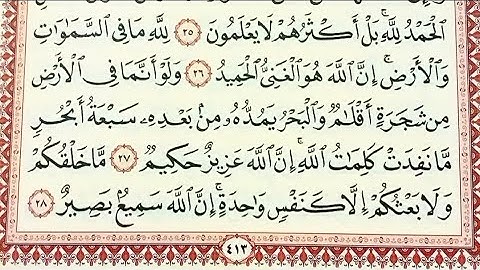 ٱلْحَمْدُ لِلَّهِ ۚ بَلْ أَكْثَرُهُمْ لَا يَعْلَمُونَ ٢٥ لِلَّهِ مَا فِى ٱلسَّمَٰوَٰتِ
وَٱلْأَرْضِ ۚ إِنَّ ٱللَّهَ هُوَ ٱلْغَنِىُّ ٱلْحَمِيدُ ٢٦ وَلَوْ أَنَّمَا فِى ٱلْأَرْضِ
مِن شَجَرَةٍ أَقْلَٰمٌ وَٱلْبَحْرُ يَمُدُّهُۥ مِنۢ بَعْدِهِۦ سَبْعَةُ أَبْحُرٍ
مَّا نَفِدَتْ كَلِمَٰتُ ٱللَّهِ ۗ إِنَّ ٱللَّهَ عَزِيزٌ حَكِيمٌ ٢٧ مَّا خَلْقُكُمْ
وَلَا بَعْثُكُمْ إِلَّا كَنَفْسٍ وَٰحِدَةٍ ۗ إِنَّ ٱللَّهَ سَمِيعٌۢ بَصِيرٌ ٢٨
٤١٣